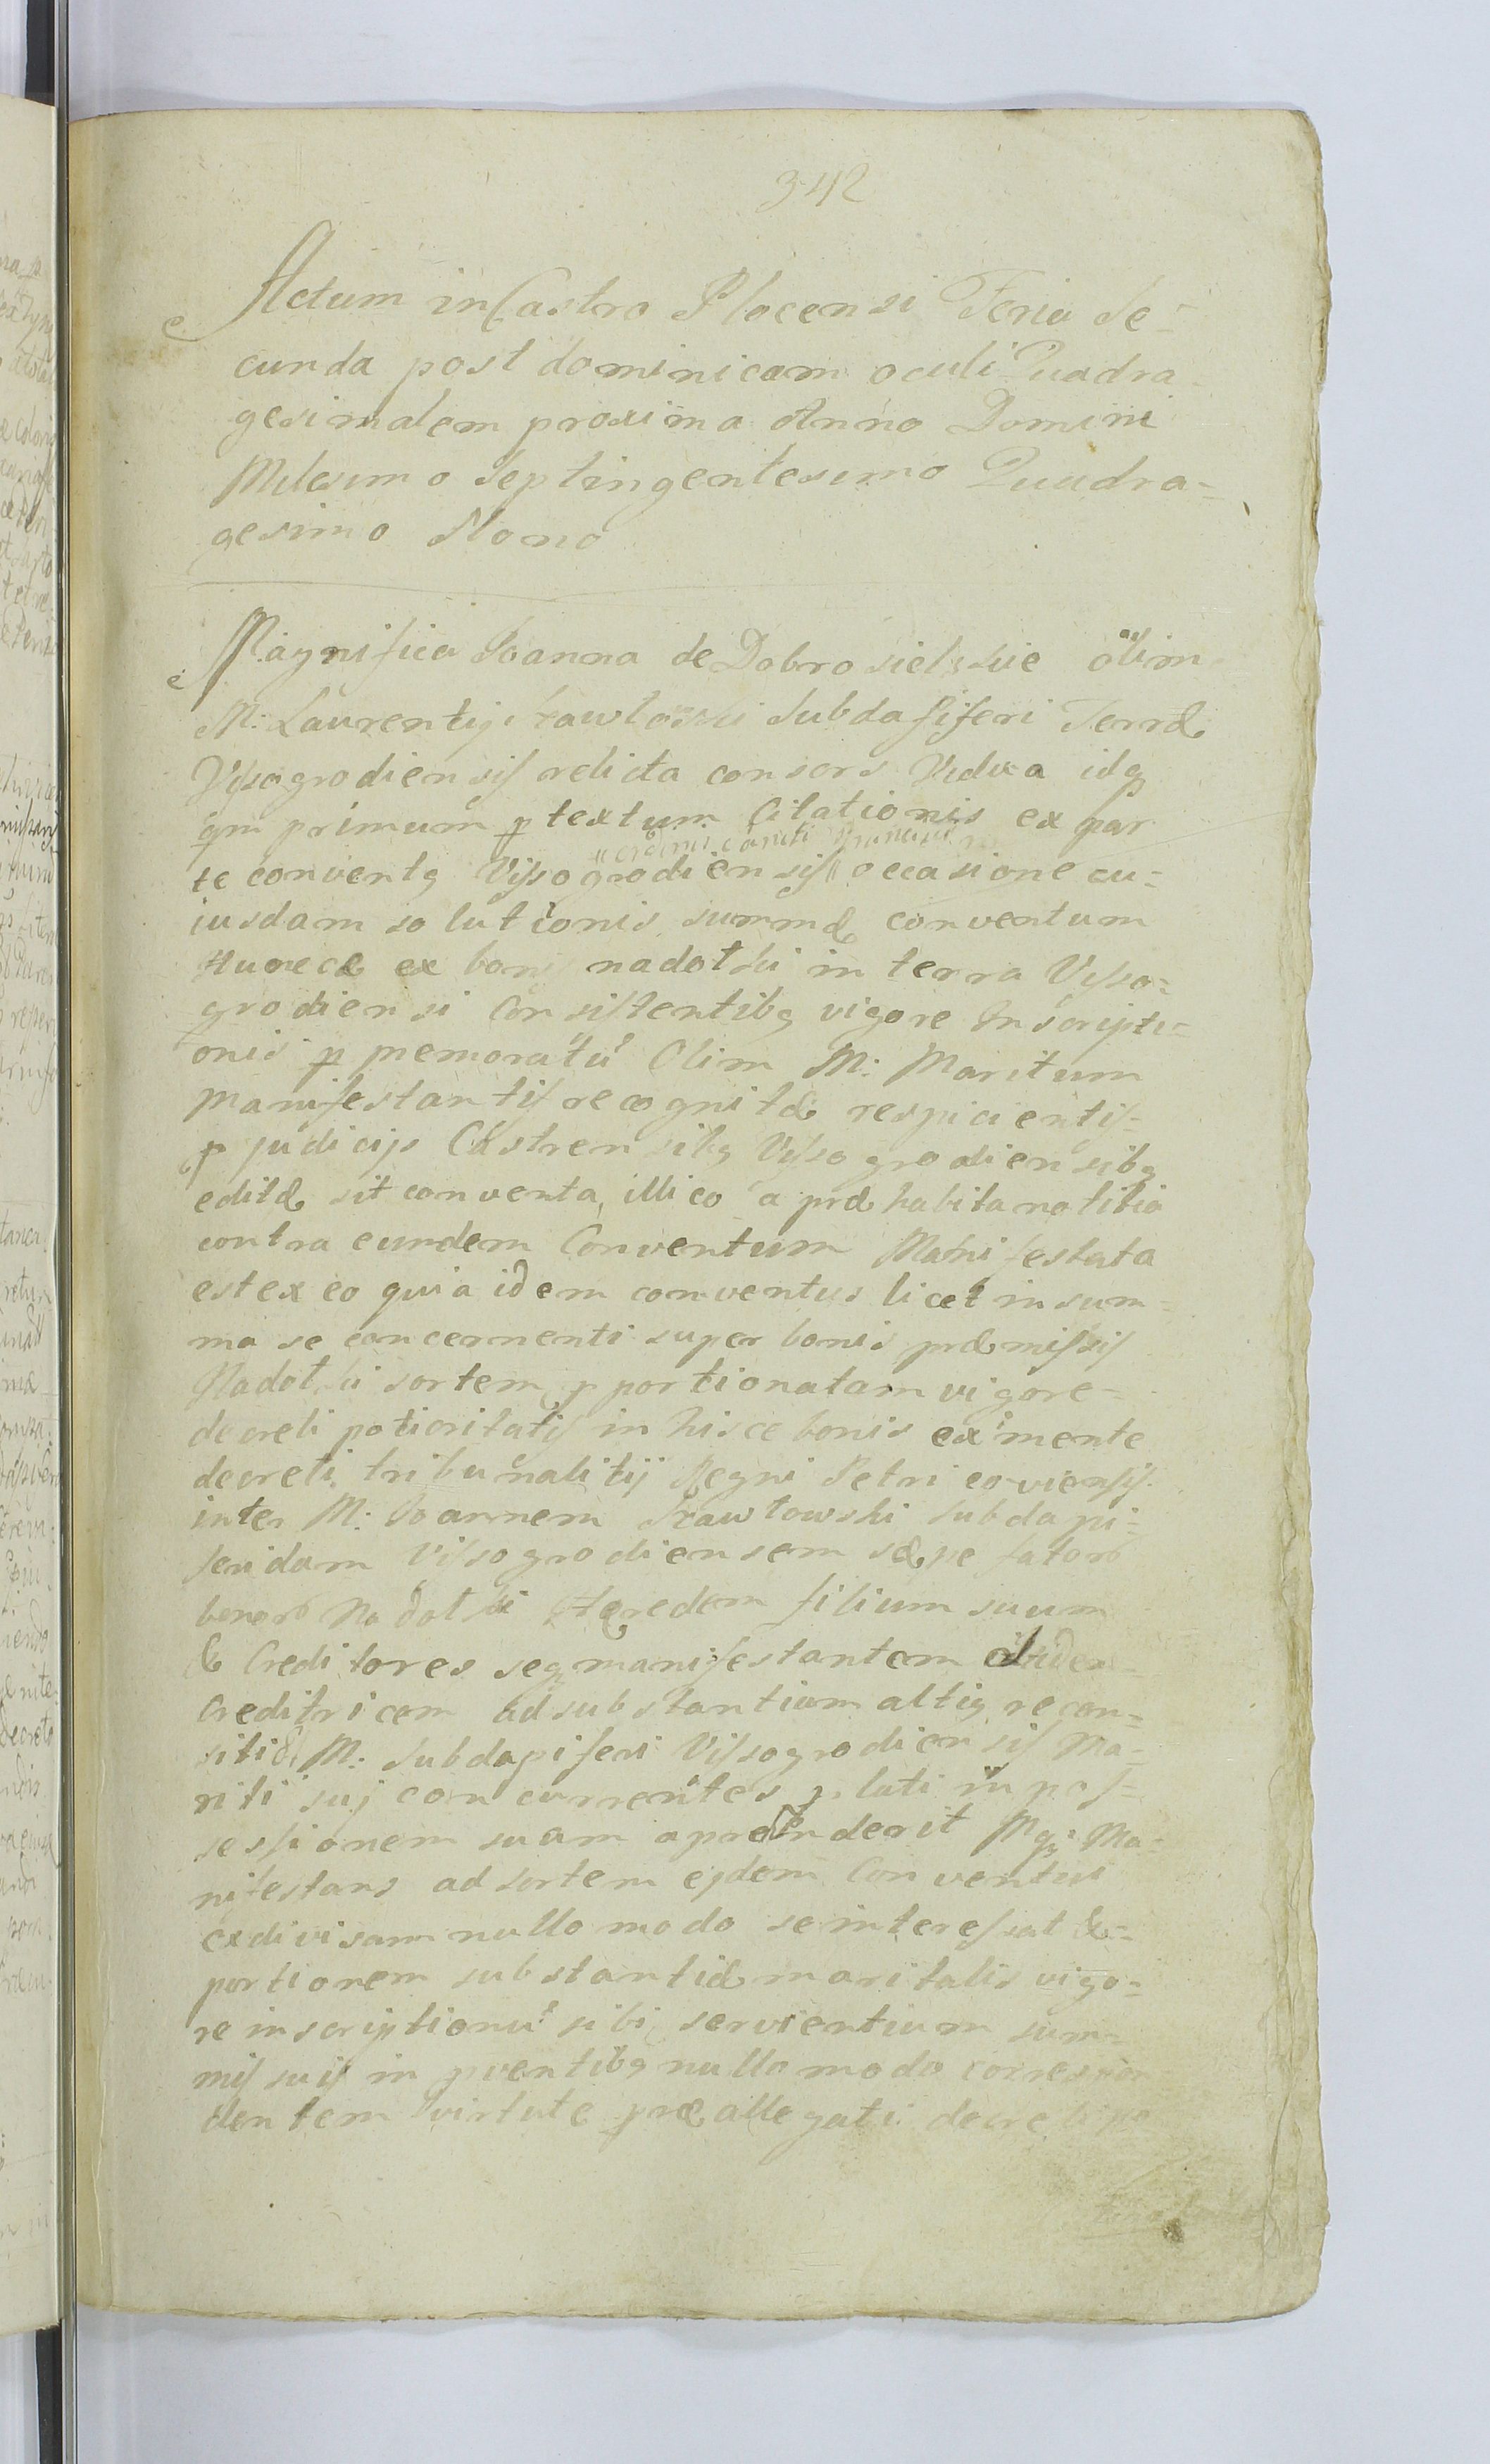 342
Actum in Castro Plocensi Feria Se=
cunda post dominicam oculi Quadra
gesimalem proxima Anno Domini
Milesimo Septingentesimo Quadra=
gesimo Nono
Magnifica Joanna de Dobrosielskie olim
M: Laurentij Subdapiferi Terræ
Vissogrodiensis relicta consors Vidua idq
qm primum p textum Citationis ex par
ordinis sancti
te conventq Vissogrodiensis occasione cu=
iusdam solutionis summæ conventum
ex bonis nadotki in terra Visso=
grodiensi Consistentibq vigore Inscripti=
onis p memoratu Olim M: Maritum
Manifestantis recognitæ respicientis=
p judicijs Castrensibq Vissogrodiensibq
editæ sit conventa, illico a præhabita notitia
contra eundem Conventum Manifestata
est ex eo quia idem conventus licet in sum=
ma se concernenti super bonis præmissis
Nadotki sortem pportionatam vigore=
decreti potioritatis in hisce bonis ex mente
decreti tribunalitij Regni Petricoviensis
inter M: Joannem Subdapi=
feridam Vissogrodiensem sæpe fator
bonor Nadotki Hæredem filium suum
& Creditores seq manifestantem
Creditricem ad substantiam altiq recen=
siti M: Subdapiferi Vissogrodiensis Ma=
riti suj concurrentes plati in pos=
sessionem suam aprehenderit Mq: Ma=
nifestans ad sortem ejdem Conventui
exdivisam nullo modo se interessat &=
portionem substantiæ maritalis vigo=
re inscriptionu sibi servientium sum=
mis suis in pventibq nullo modo correspon
dentem virtute præallegati decreti po